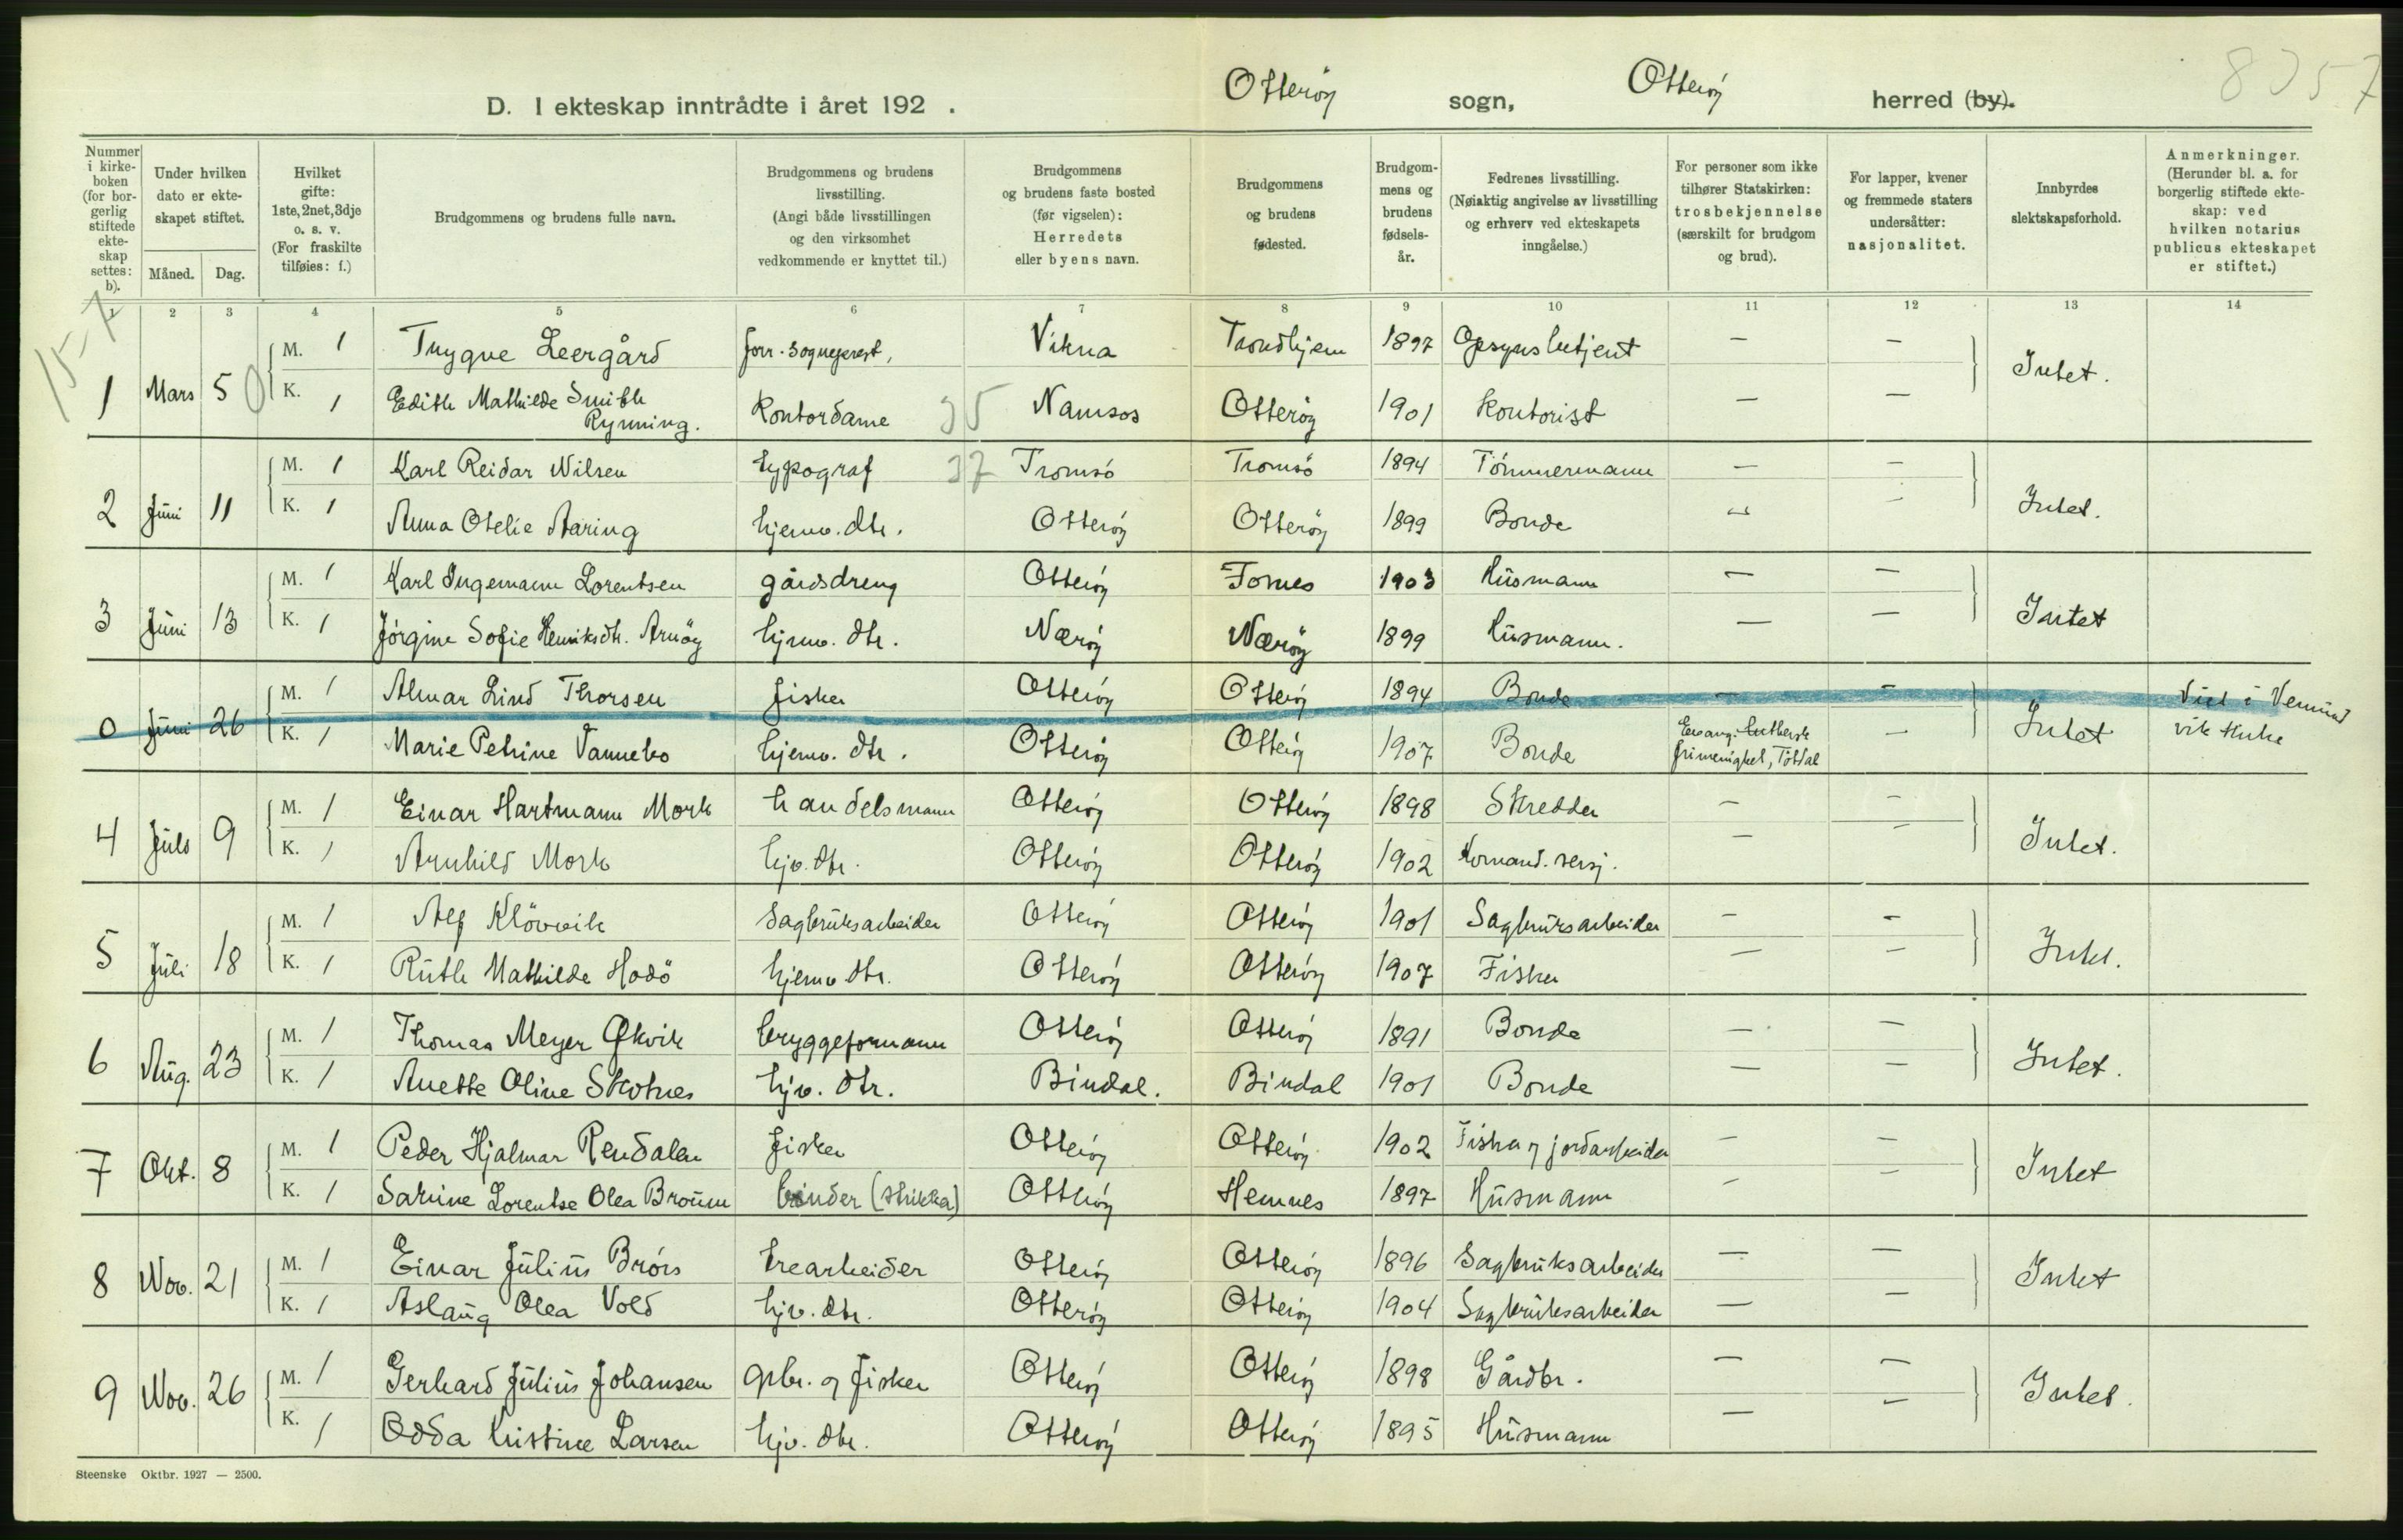 D. I ekteskap inntrådte i året 192 .
Otterøy sogn, Otterøy herred (by).
Nummer i kirkeboken (for borgerlig stiftede ekteskap settes: b).
Under hvilken dato er ekteskapet stiftet.
Måned. Dag.
Hvilket gifte: 1ste, 2net, 3dje o. s. v. (For fraskilte tilføies: f.)
Brudgommens og brudens fulle navn.
Brudgommens og brudens livsstilling. (Angi både livsstillingen og den virksomhet vedkommende er knyttet til.)
Brudgommens og brudens faste bosted (før vigselen): Herredets eller byens navn.
Brudgommens og brudens fødested.
Brudgommens og brudens fødselsår.
Fedrenes livsstilling. (Nøiaktig angivelse av livsstilling og erhverv ved ekteskapets inngåelse.)
For personer som ikke tilhører Statskirken: trosbekjennelse (særskilt for brudgom og brud).
For lapper, kvener og fremmede staters undersåtter: nasjonalitet.
Innbyrdes slektskapsforhold.
Anmerkninger. (Herunder bl. a. for borgerlig stiftede ekteskap: ved hvilken notarius publicus ekteskapet er stiftet.)
1 2 3 4 5 6 7 8 9 10 11 12 13 14
15-7
1 Mars 5 M. 1 Trygve Leergård forr. sogneprest, Vikna Trondhjem 1897 Opsynsbetjent — — Intet.
K. 1 Edith Mathilde Smith Rynning. Kontordame 35 Namsos Otterøy 1901 Kontorist — —
2 Juni 11 M. 1 Karl Reidar Nilsen typograf 37 Tromsö Tromsö 1894 Tömmermann — — Intet.
K. 1 Anna Otelie Aaring hjemv. dtr. Otterøy Otterøy 1899 Bonde — —
3 Juni 13 M. 1 Karl Ingemann Lorentsen gårdsdreng Otterøy Fosnes 1903 Husmann — — Intet
K. 1 Jörgine Sofie Henriksdtr. Arnöy hjemv. dtr. Nærøy Nærøy 1899 Husmann. — —
0 Juni 26 M. 1 Almar Lind Thorsen fisker Otterøy Otterøy 1894 Bonde — — Intet Viet i Vemund
K. 1 Marie Petrine Vannebo hjemv. dtr. Otterøy Otterøy 1907 Bonde Evang. Luthersk frimenighet, Tötdal — vik kirke
4 Juli 9 M. 1 Einar Hartmann Mork handelsmann Otterøy Otterøy 1898 Skredder — — Intet.
K. 1 Arnhild Mork hjv. dtr. Otterøy Otterøy 1902 Komand. sersj. — —
5 Juli 18 M. 1 Alf Klövvik Sagbruksarbeider Otterøy Otterøy 1901 Sagbruksarbeider — — Intet.
K. 1 Ruth Mathilde Hodö hjemv dtr. Otterøy Otterøy 1907 Fisker — —
6 Aug. 23 M. 1 Thomas Meyer Økvik bryggeformann Otterøy Otterøy 1891 Bonde — — Intet.
K. 1 Anette Oline Skotnes hjv. dtr. Bindal. Bindal 1901 Bonde — —
7 Okt. 8 M. 1 Peder Hjalmar Rendalen fisker Otterøy Otterøy 1902 Fisker og jordarbeider — — Intet
K. 1 Sarine Lorentse Olea Broum binder (strikka) Otterøy Hemnes 1897 Husmann — —
8 Nov. 21 M. 1 Einar Julius Brörs trearbeider Otterøy Otterøy 1896 Sagbruksarbeider — — Intet
K. 1 Aslaug Olea Vold hjv. dtr. Otterøy Otterøy 1904 Sagbruksarbeider — —
9 Nov. 26 M. 1 Gerhard Julius Johansen gbr. og fisker Otterøy Otterøy 1898 Gårdbr. — — Intet.
K. 1 Odda Kristine Larsen hjv. dtr. Otterøy Otterøy 1895 Husmann — —
Steenske Oktbr. 1927 — 2500.